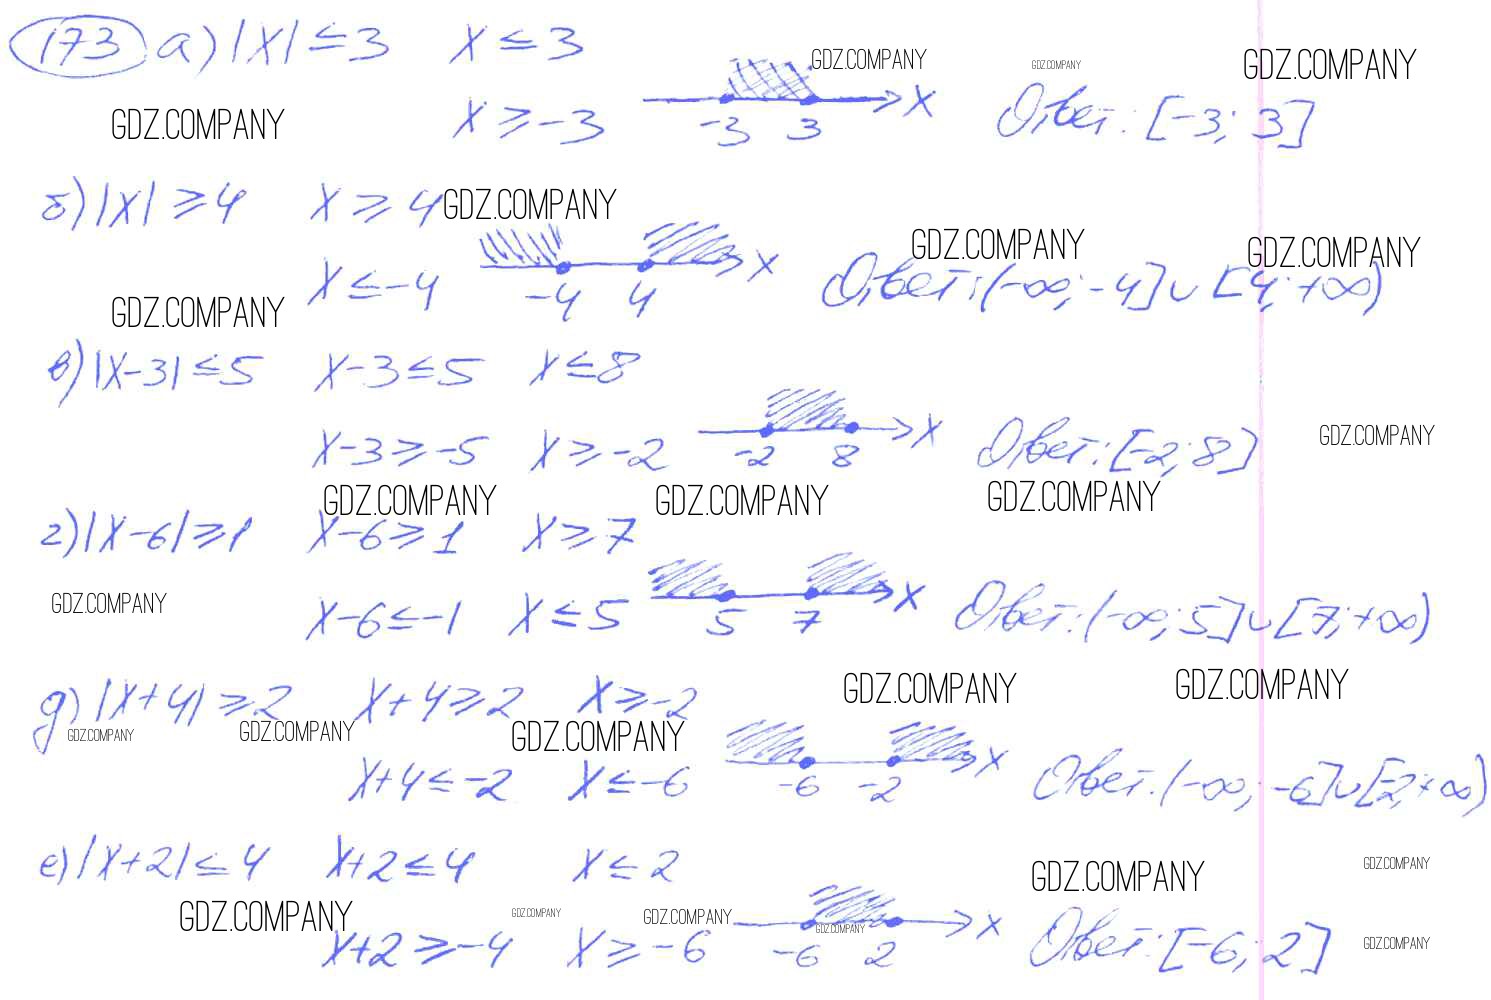 173 а) |x| ≤ 3 x ≤ 3 GDZ.COMPANY GDZ.COMPANY GDZ.COMPANY
GDZ.COMPANY x ≥ -3 -3 3 x Ответ: [-3; 3]
б) |x| ≥ 4 x ≥ 4 GDZ.COMPANY GDZ.COMPANY GDZ.COMPANY
GDZ.COMPANY x ≤ -4 -4 4 x Ответ: (-∞; -4] ∪ [4; +∞)
в) |x-3| ≤ 5 x-3 ≤ 5 x ≤ 8
x-3 ≥ -5 x ≥ -2 -2 8 x Ответ: [-2; 8] GDZ.COMPANY
GDZ.COMPANY GDZ.COMPANY GDZ.COMPANY
г) |x-6| ≥ 1 x-6 ≥ 1 x ≥ 7
GDZ.COMPANY x-6 ≤ -1 x ≤ 5 5 7 x Ответ: (-∞; 5] ∪ [7; +∞)
д) |x+4| ≥ 2 x+4 ≥ 2 x ≥ -2 GDZ.COMPANY GDZ.COMPANY
GDZ.COMPANY GDZ.COMPANY GDZ.COMPANY
x+4 ≤ -2 x ≤ -6 -6 -2 x Ответ: (-∞; -6] ∪ [-2; +∞)
е) |x+2| ≤ 4 x+2 ≤ 4 x ≤ 2 GDZ.COMPANY GDZ.COMPANY
GDZ.COMPANY GDZ.COMPANY GDZ.COMPANY GDZ.COMPANY
x+2 ≥ -4 x ≥ -6 -6 2 x Ответ: [-6; 2] GDZ.COMPANY